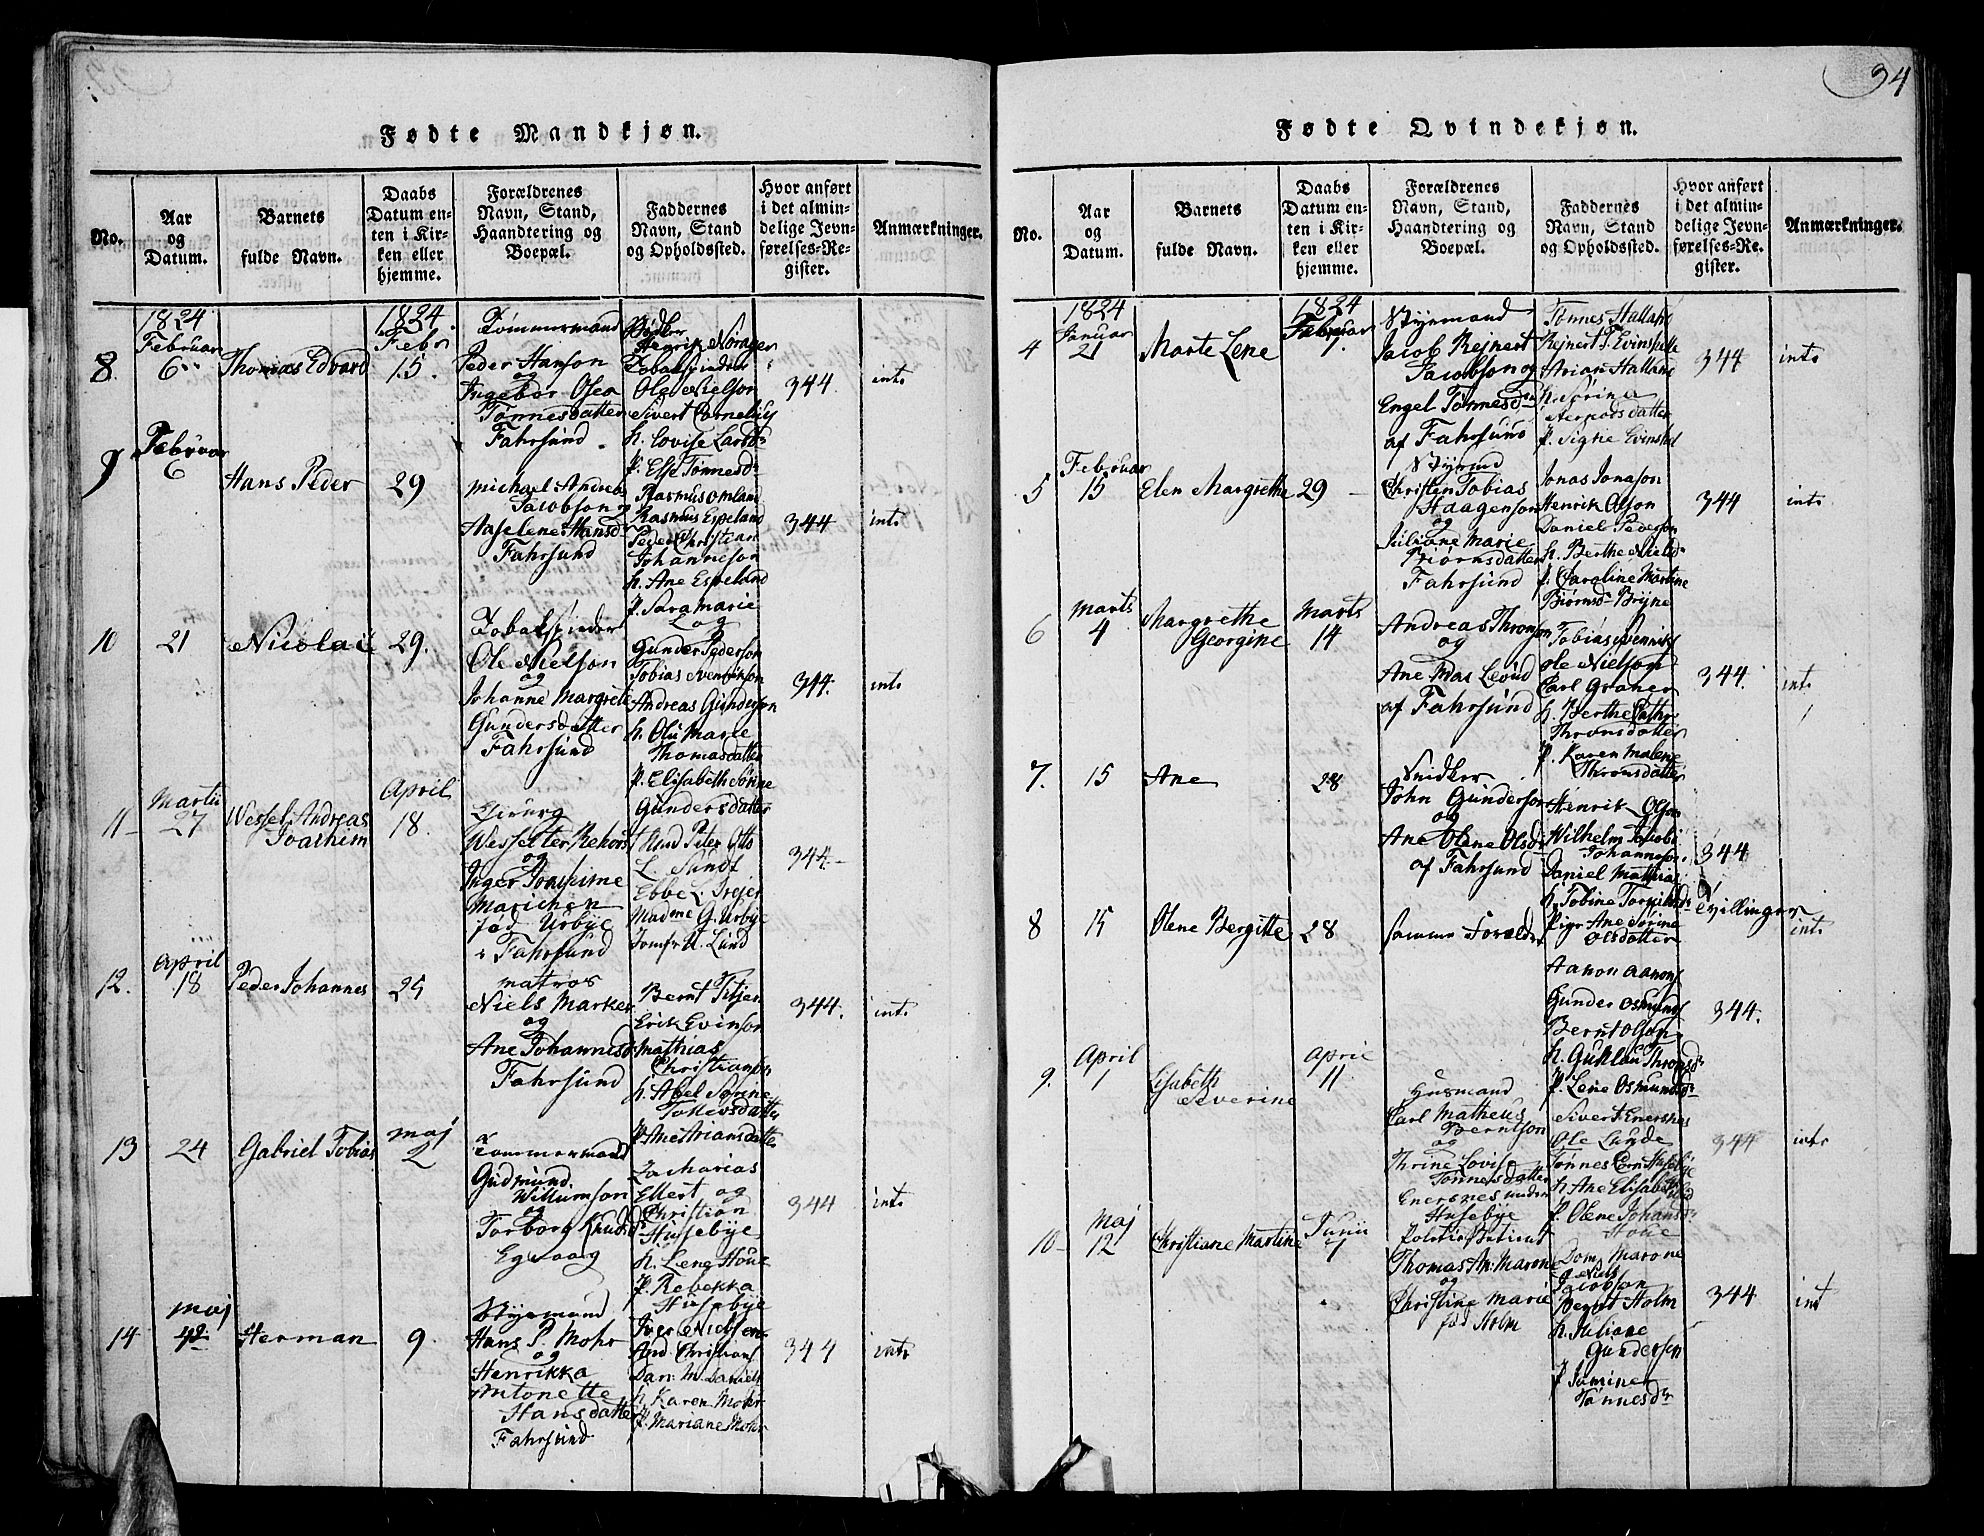 34
Fødte Mandkjøn.
No.
Aar
og
Datum.
Barnets
fulde Navn.
Daabs
Datum en-
ten i Kir-
ken eller
hjemme.
Forældrenes
Navn, Stand,
Haandtering og
Boepæl.
Faddernes
Navn, Stand
og Opholdssted.
Hvor anført
i det almin-
delige Jevn-
førelses-Re-
gister.
Anmærkninger.
8.
1824
Februar
6
Thomas Edvard
1824.
Febr
15.
Tømmermand
Peder Hanson
og
Ingebor Osea
Tønnesdatter
Fahrsund.
Bødker
Henrik Norager
Tobakspinder
Ole Nielson
Sivert Cornelius
h. Lovise Larsdr
p. Else Tønnesdr
344
int.
9
Februar
6
Hans Peder
29
Michael Andreas
Jacobson og
Aaselene Hansd
Fahrsund
Rasmus Omland
Rasmus Espeland
Peder Christian
Johanneson
h. Ane Espeland
p. Sara Marie
Log
344
int.
10
21
Nicolai
29.
Tobakspinder
Ole Nielson
og
Johanne Margrete
Gundersdatter
Fahrsund
Gunder Pederson
Tobias Svenson
Andreas Gunderson
h. Olu Marie
Thomasdatter
p. Elisabeth Sørine
Gundersdatter
344.
int.
11
Martii
27
Wessel Andreas
Joachim
April
18.
Chirurg
Wessel ter Rehorst
og
Inger Joachime
Marichen
fød Urbye
i Fahrsund
Knud Peter Otto
L. Sundt
Ebbe L. Drejer
Madme G. Urbye
Jomfr U. Lund
344.
12.
April
18
Peder Johannes
25
Matros
Niels Marker
og
Ane Johannesd
Fahrsund
Bernt Titjer
Erik Evinson
Mathias
Christians
h. Abel Sørine
Tollevsdatter
p. Ane Ariansdatter
344.
int.
13
24
Gabriel Tobias
Maj
2
Tømmermand
Gudmund
Willumson
og
Torborg Knudsdr
Egvaag
Zacharias
Ellert og
Christian
Husebye
h. Lene Houe
p. Rebekka
Husebye
344
int.
14
Maj
Herman
9
Styrmand
Hans P. Mohr
og
Henrikka
Antonette
Hansdatter
Fahrsund
Iver Nielsen
And. Christians
Dan. M. Daniels
h. Karen Mohr
p. Mariane Mohr
344
int.
Fødte Qvindekjøn.
No.
Aar
og
Datum.
Barnets
fulde Navn.
Daabs
Datum en-
ten i Kir-
ken eller
hjemme.
Forældrenes
Navn, Stand,
Haandtering og
Boepæl.
Faddernes
Navn, Stand
og Opholdssted.
Hvor anført
i det almin-
delige Jevn-
førelses-Re-
gister.
Anmærkninger.
4
1824
Januar
21
Marte Lene
1824
Februar
1.
Styrmand
Jacob Rejnert
Jacobson og
Engel Tønnesdr
af Fahrsund
Tønnes Halland
Rejnert T. Evinstelle
Arian Halland
h. Sørina
p. Signe Evinsted
344
int.
5
Februar
15
Elen Margrethe
29
Styrmd
Christen Tobias
Haagenson
og
Juliane Marie
Biørnsdatter
Fahrsund
Jonas Jonason
Henrik Olson
Daniel Pederson
h. Berthe Nielsdr
p. Caroline Martine
Biørnsdr Bryne
344
int.
6
Marts
4
Margrethe
Georgine
Marts
14
Andreas Thronson
og
Ane Mar. Lovid
af Fahrsund
Tobias Svenriks
Ole Nielson
Carl Graner
h. Berthe Cathr
Thronsdatter
p. Karen Malene
Thronsdatter
344.
int.
7.
15
Ane
28
Snidker
John Gunderson
og
Ane Olene Olsdr
af Fahrsund
Henrik Olson
Wilhelm Jacobi
Johanneson
Daniel Mathias
h. Tobine Torkilds
Pige Ane Sørine
Olsdatter
344
Tvillinger
int.
8
15
Olene Bergitte
28
samme Forældre
Aanon Aanons
Gunder Osmunds
Bernt Olson
h. Gunlau Thronsdr
p. Lene Osmundsdr
344.
9.
April
1
Lisabeth
Severine
April
11
Husmand
Carl Matheus
Berntson
og
Thrine Lovise
Tønnesdatter
Enersnes under
Husebye
Sivert Enersnes
Ole Lunde
Tønnes Ern Husebye
h. Ane Elisabeth
p. Olene Johansdr
Houe
344
int.
10
Maj
12
Christiane Martine
Junii
7
Politie Betient
Thomas An. Marone
og
Christine Marie
fød Holm
Dom. Marone
Niels
Jacobson
Bernt Holm
h. Juliane
Gundersen
p. Jamine
Tønnesdr
344
int.